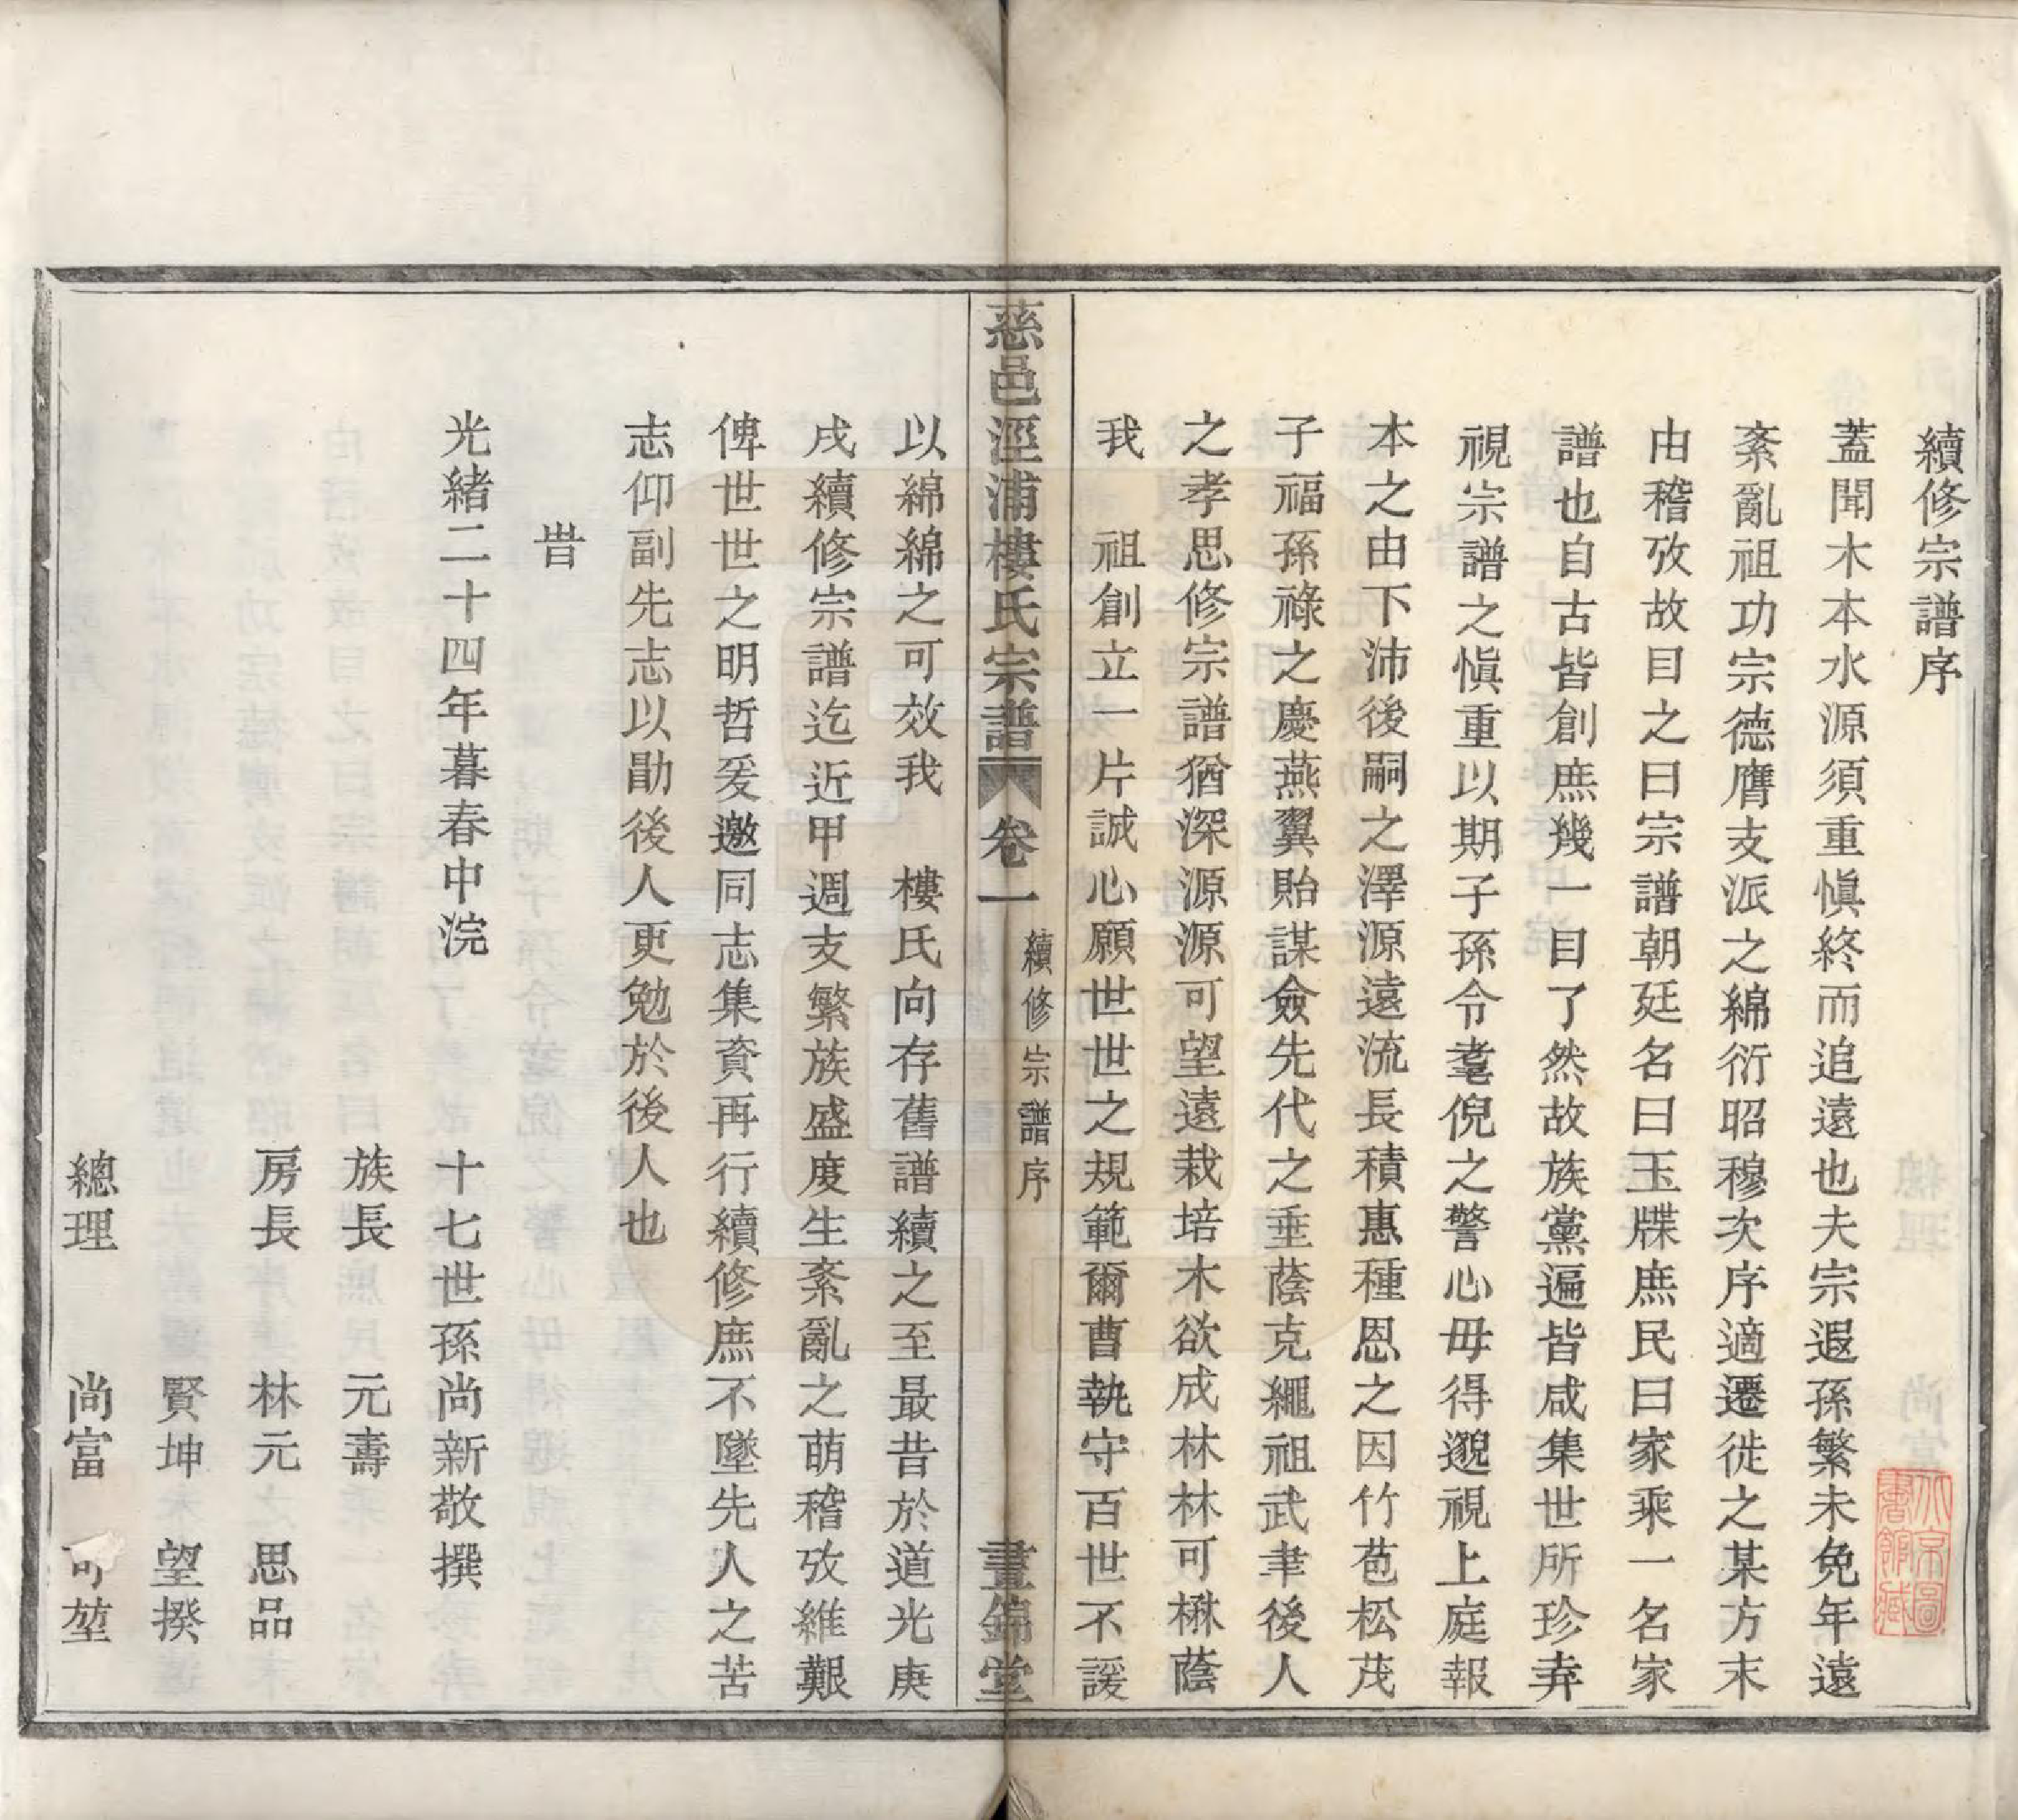 續修宗譜序
蓋聞木本水源須重愼終而追遠也夫宗遐孫繁未免年遠
紊亂祖功宗德膺支派之綿衍昭穆次序適遷徙之某方末
由稽攷故目之曰宗譜朝廷名曰玉牒庶民曰家乘一名家
譜也自古皆創庶幾一目了然故族黨遍皆咸集世所珍弆
視宗譜之愼重以期子孫令耄倪之警心毋得邈視上庭報
本之由下沛後嗣之澤源遠流長積惠種恩之因竹苞松茂
子福孫祿之慶燕翼貽謀僉先代之垂蔭克繩祖武聿後人
之孝思修宗譜猶深源源可望遠栽培木欲成林林可楙蔭
我　祖創立一片誠心願世世之規範爾曹執守百世不諼
慈邑淫浦樓氏宗譜　卷一　續修宗譜序　晝錦堂
以綿綿之可效我　樓氏向存舊譜續之至最昔於道光庚
戌續修宗譜迄近甲週支繁族盛度生紊亂之萌稽攷維艱
俾世世之明哲爰邀同志集資再行續修庶不墜先人之苦
志仰副先志以勖後人更勉於後人也
旹
光緒二十四年暮春中浣　十七世孫尚新敬撰
族長　元壽
房長　林元　思品
賢坤　望揆
總理　尚富　可堃
北京圖書館藏